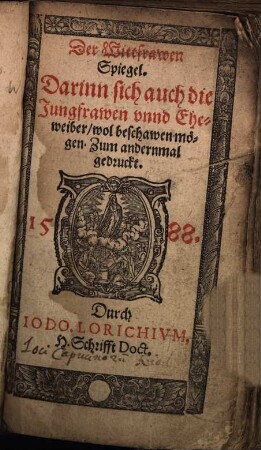 Der Witefrawen
Spiegel.
Darinn sich auch die
Jungfrawen vnnd Ehe-
weiber/wol beschawen mö-
gen. Zum andernmal
gedruckt.
1588.
Durch
IODO. LORICHIVM,
H. Schrifft Doct.
Loci Capucinorū